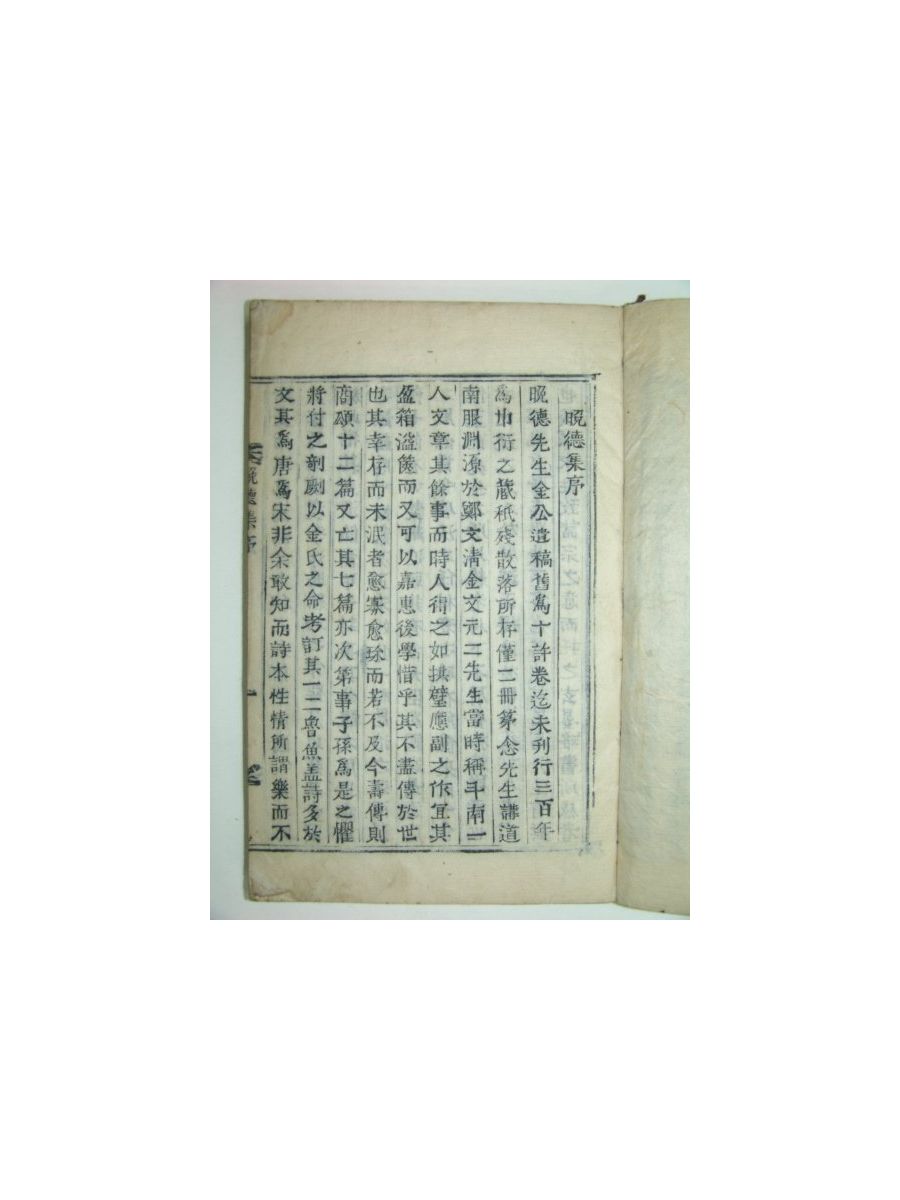 晩德集序
晩德先生金公遺稿舊爲十許卷迄未刋行三百年
爲巾衍之蔵秖殘散落所存僅二冊茅念先生講道
南服淵源於鄭文淸金文元二先生當時稱斗南一
人文章其餘事而時人得之如拱璧應副之作宜其
盈箱溢篋而又可以嘉惠後學惜乎其不盡傳於世
也其幸存而未泯者愈寡愈珎而若不及今壽傳則
商頌十二篇又亡其七篇亦次第事子孫爲是之懼
將付之剞劂以金氏之命考訂其一二魯魚盖詩多於
文其爲唐爲宋非余敢知而詩本性情所謂樂而不
晩德集序
一